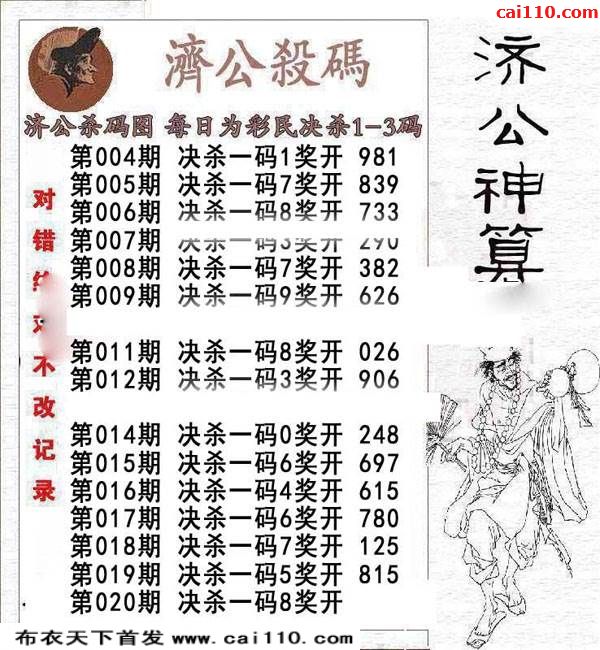 cai110.com
濟公殺碼
济公杀码图 每日为彩民决杀1-3码
第004期 决杀一码1奖开 981
第005期 决杀一码7奖开 839
第006期 决杀一码8奖开 733
第007期 决杀一码3奖开 290
第008期 决杀一码7奖开 382
第009期 决杀一码9奖开 626
第011期 决杀一码8奖开 026
第012期 决杀一码3奖开 906
第014期 决杀一码0奖开 248
第015期 决杀一码6奖开 697
第016期 决杀一码4奖开 615
第017期 决杀一码6奖开 780
第018期 决杀一码7奖开 125
第019期 决杀一码5奖开 815
第020期 决杀一码8奖开
对错
不改记录
济公神算
布衣天下首发 www.cai110.com